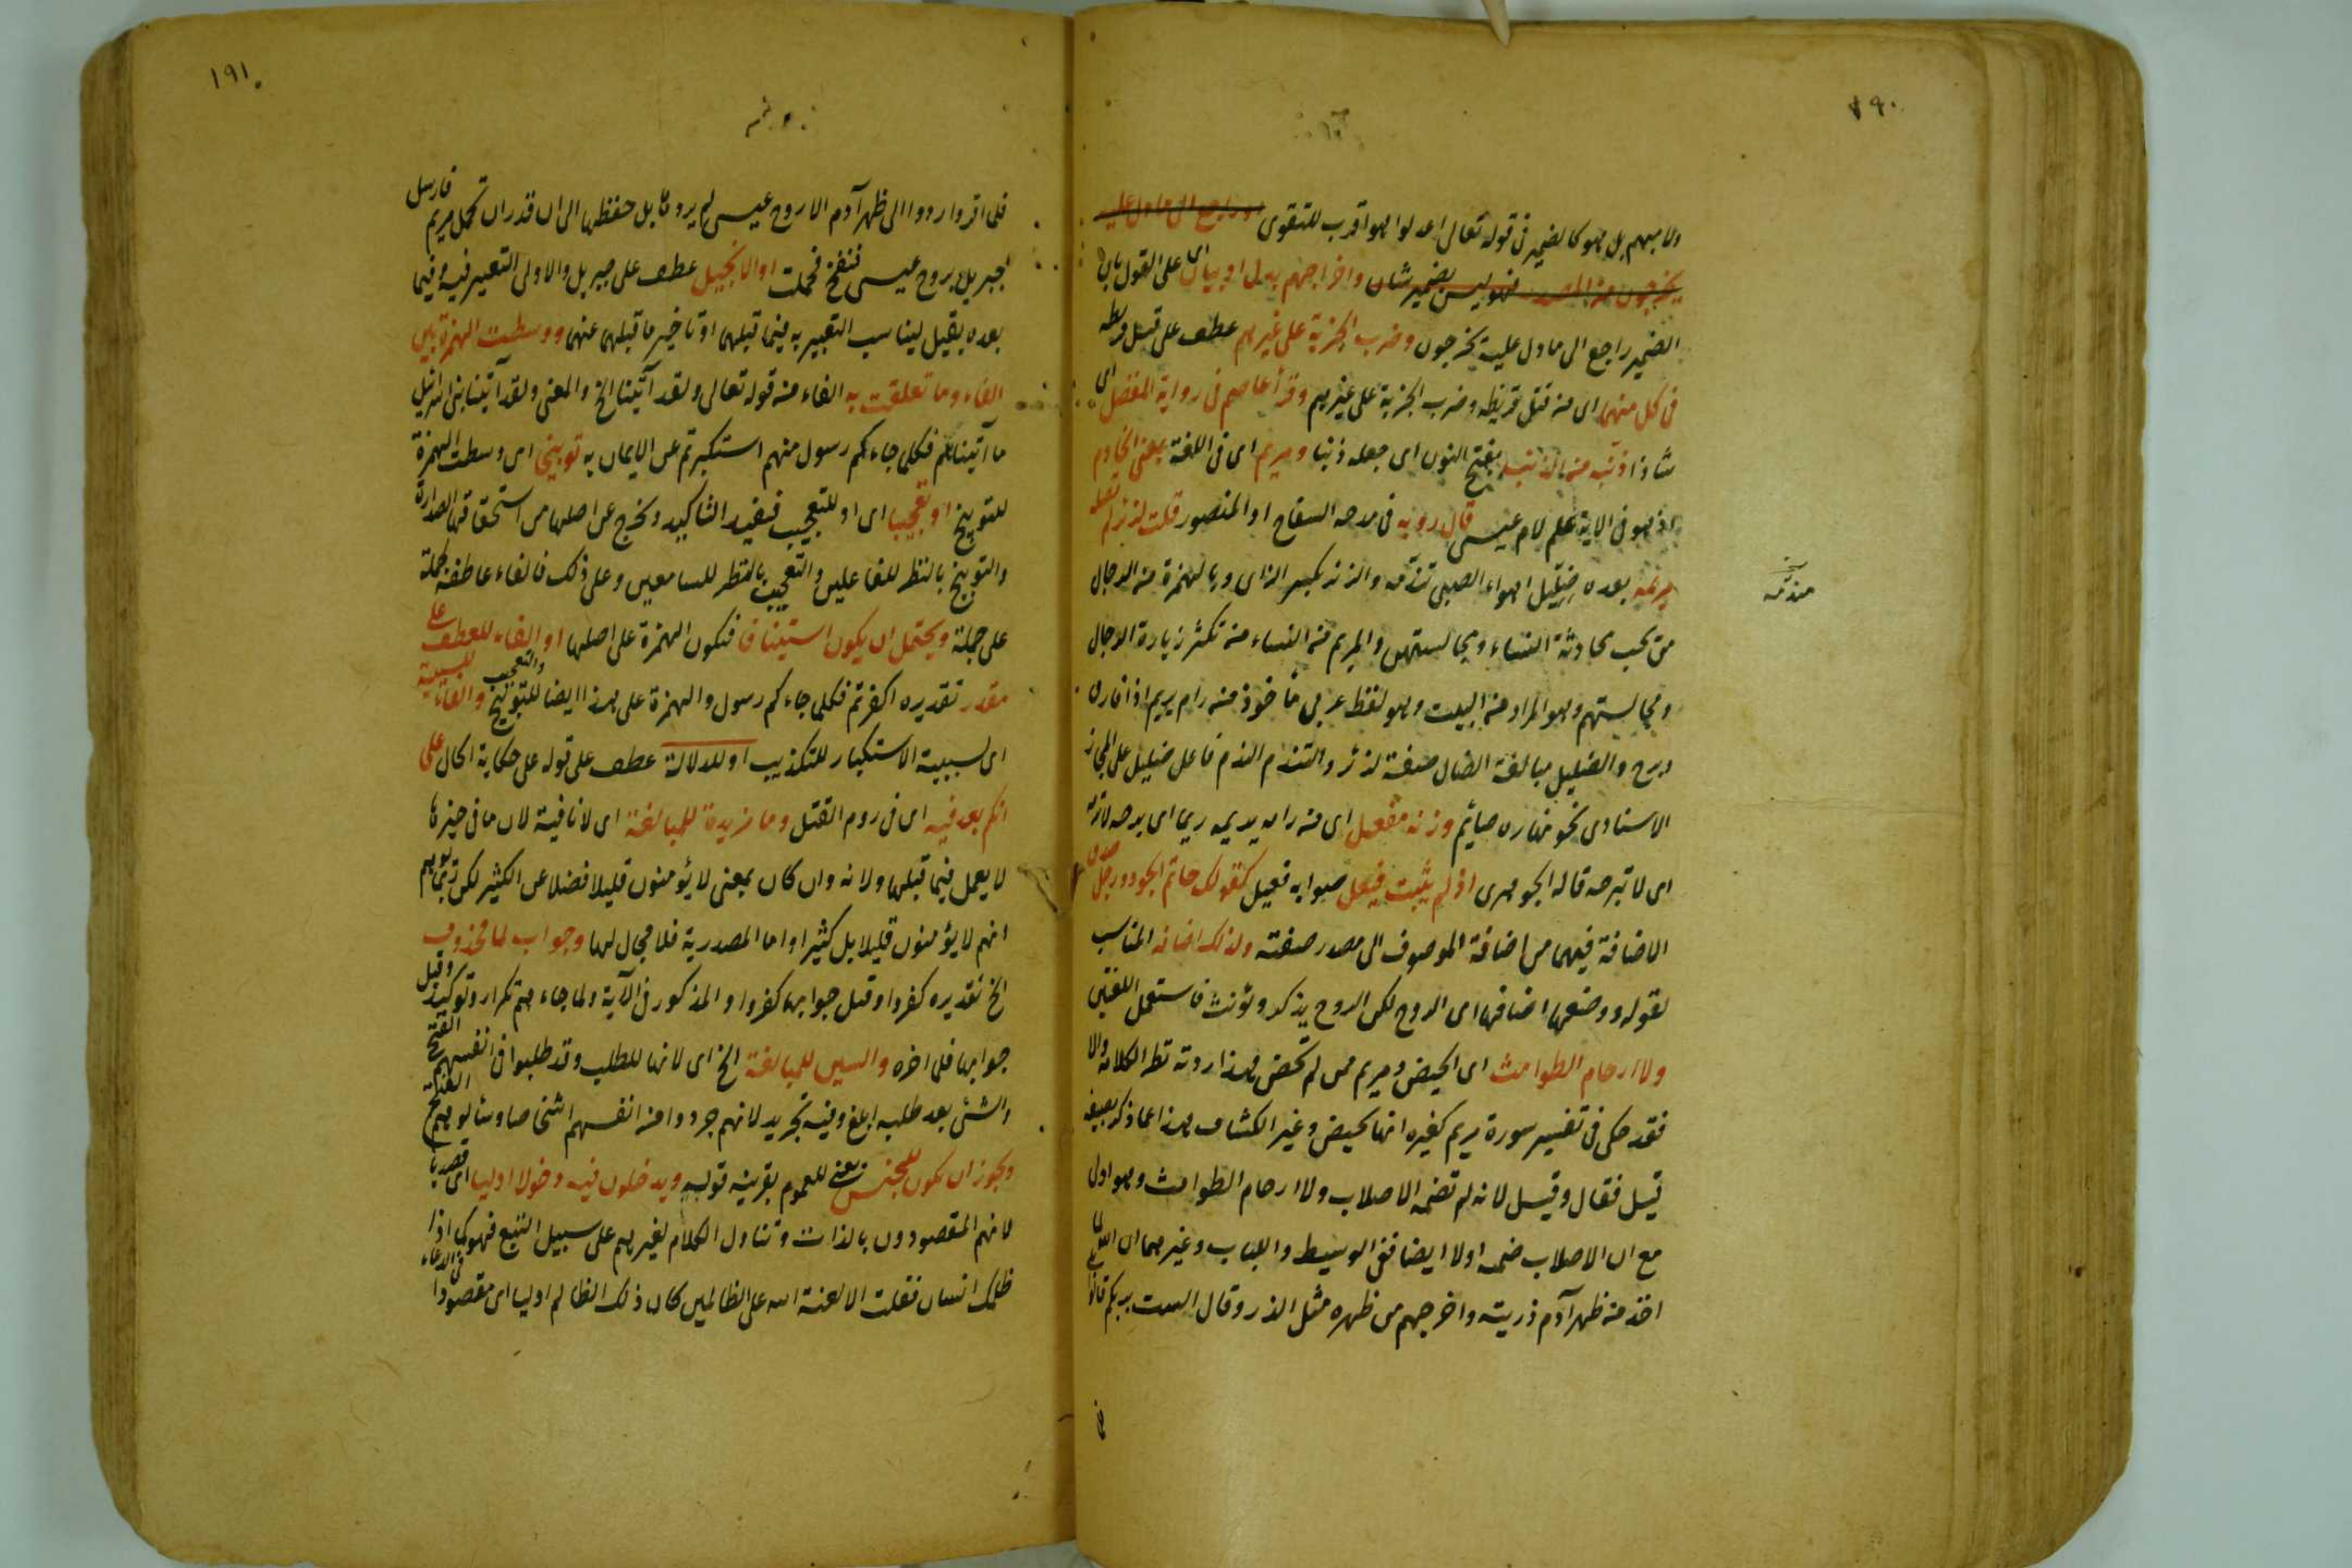 ٧٩٠
ولا مبهم بل هو كالضمير فى قوله تعالى اعدلوا هو اقرب للتقوى او راجع الى ما دل عليه
يخرجون من المصدر فهو ليس بضمير شان واخراجهم بدل او بيان اى على القول بان
الضمير راجع الى ما دل عليه يخرجون وضرب الجزية على غيرهم عطف على قتل قريظه
فى كل منهما اى من قتل قريظه وضرب الجزية على غيرهم وقرأ عاصم فى رواية المفضل اى
شاذا بفتح النون اى جعله ذنبا ومريم اى فى اللغة بمعنى الخادم
اذ هو فى الاية علم لام عيسى قال رؤبه فى مدحه السفاح او المنصور قلت لزير لم تصله
مريمه بعده ضليل اهواء الصبى تندمه والزير بكسر الزاى وبالهمزة من الرجال
من يحب محادثة النساء ومجالستهن والمريم من النساء من تكثر زيارة الرجال
ومجالستهم وهو المراد من البيت وهو لفظ عربى مأخوذ من رام يريم اذا فارق
وبرح والضليل مبالغة الضال صفة لزير والتندم الندم فاعل ضليل على المجاز
الاسنادى نحو نهاره صائم وزنه مفعل اى من رامه يريمه ريما اى برحه لاترمه
اى لا تبرحه قاله الجوهرى اذ لم يثبت فيعل صوابه فعيل كقولك حاتم الجود ورجل صدق
الاضافة فيهما من اضافة الموصوف الى مصدر صفته ولذلك اضافه المناسب
لقوله ووضعها اضافها اى الروح لكن الروح يذكر ويؤنث فاستعمل اللغتين
ولا ارحام الطوامث اى الحيض ومريم ممن لم تحض
فقد حكى فى تفسير سورة مريم كغيره انها تحيض وغير الكشاف هذا عما ذكر بصيغه
قيل فقال وقيل لانه لم تضمه الاصلاب ولا ارحام الطوامث وهو اولى
مع ان الاصلاب ضمه اولا ايضا ففى الوسيط واللباب وغيرهما ان الله لما
اخذ من ظهر آدم ذريته واخرجهم من ظهره مثل الذر وقال الست بربكم قالوا
١٩١
فلما اقروا ردوا الى ظهر آدم الا روح عيسى لم يردها بل حفظها الى ان قدر ان تحمل مريم فارسل
جبريل بروح عيسى فنفخ فحملت او الانجيل عطف على جبريل والاولى التعبير فيه وفيما
بعده بقيل ليناسب التعبير به فيما قبلهما او تاخير ما قبلهما عنهما ووسطت الهمزة بين
الفاء وما تعلقت به الفاء من قوله تعالى ولقد آتينا الخ والمعنى ولقد آتينا بنى اسرائيل
ما آتيناهم فكلما جاءكم رسول منهم استكبرتم عن الايمان به توبيخا اى وسطت الهمزة
للتوبيخ او تعجيبا اى او للتعجيب فيفيد التاكيد وتخرج عن اصلها من استحقاقها الصدارة
والتوبيخ بالنظر للفاعلين والتعجيب بالنظر للسامعين وعلى ذلك فالفاء عاطفة جملة
على جملة ويحتمل ان يكون استينافا فتكون الهمزة على اصلها او الفاء للعطف على
مقدر تقديره اكفرتم فكلما جاءكم رسول والهمزة على هذا ايضا للتوبيخ والتعجيب والفاء للسببية
اى لسببية الاستكبار للتكذيب او للدلالة عطف على قوله على حكاية الحال على
انكم بعد فيه اى فى روم القتل وما مزيدة للمبالغة اى لا نافية لان ما فى حيزها
لا يعمل فيما قبلها ولانه وان كان بمعنى لا يؤمنون قليلا فضلا عن الكثير لكن
انهم لا يؤمنون قليلا بل كثيرا واما المصدرية فلا مجال لها وجواب لما محذوف
الخ تقديره كفروا وقيل جوابها كفروا والمذكور فى الآية ولما جاءهم تكرار وتوكيد وقيل
جوابها فلما اخره والسين للمبالغة الخ اى لانها للطلب وقد طلبوا فى انفسهم الفتح
والشئ بعد طلبه ابلغ وفيه تجريد لانهم جردوا من انفسهم اشخاصا وسألوهم الفتح
ويجوز ان تكون للجنس يعنى للعموم بقرينة قوله ويدخلون فيه دخولا اوليا اى قصديا
لانهم المقصودون بالذات وتناول الكلام لغيرهم على سبيل التبع فهو كما اذا
ظلمك انسان فقلت الا لعنة الله على الظالمين كان ذلك الظالم اوليا اى مقصودا فى الدعاء